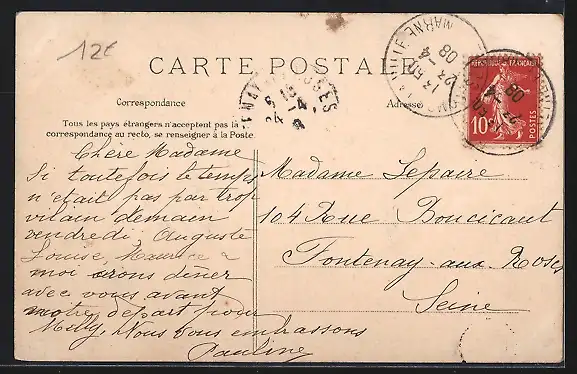 12€
CARTE POSTALE
Correspondance
Adresse
Tous les pays étrangers n'acceptent pas la
correspondance au recto, se renseigner à la Poste
Chère Madame
Si toutefois le temps
n'était pas par trop
vilain demain
vendredi, Auguste
Louise, Maurice &
moi irons dîner
avec vous avant
notre départ pour
Melly. Nous vous embrassons
Pauline
Madame Lepaire
104 Rue Boucicaut
Fontenay-aux-Roses
Seine
REPUBLIQUE FRANÇAISE
10c
POSTES
MARNE
13 50
23 - 4
08
24 - 4